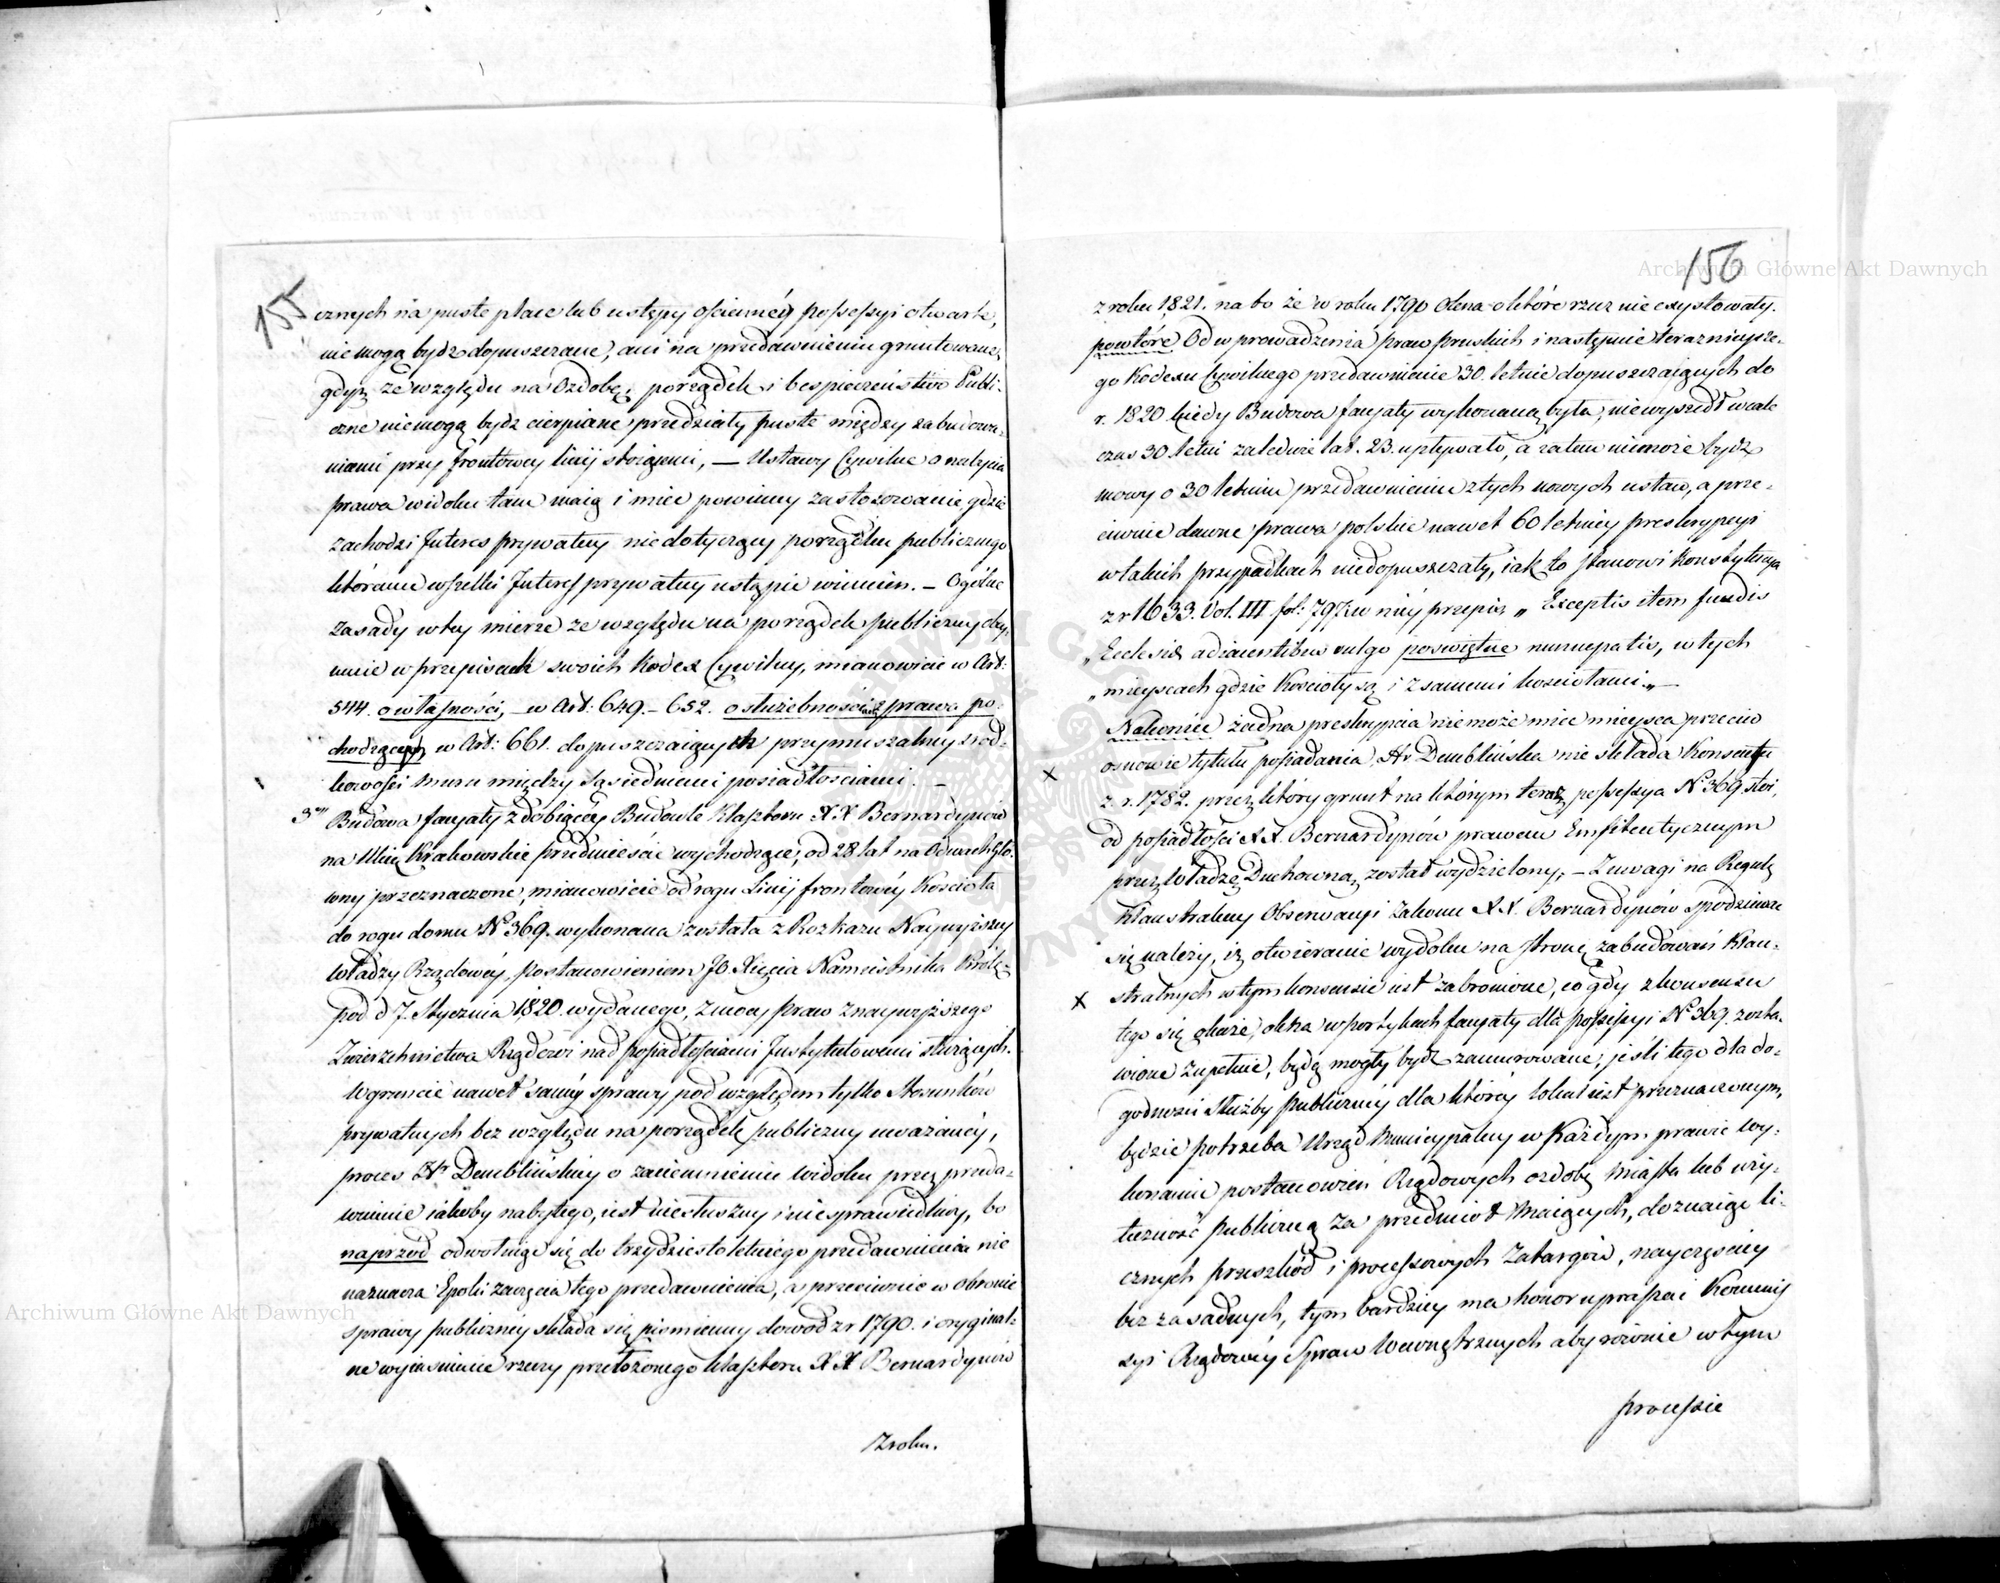 155
cznych na puste place lub ustępy ościenney possessyi otwarte,
nie mogą bydz dopuszczane, ani na przedawnieniu gruntowane,
gdyż ze względu na Ozdobę, porządek i bespieczeństwo Publi-
czne nie mogą bydz cierpiane przedziały puste między zabudowa-
niami przy frontowey linij stoiącemi, — Ustawy Cywilne o nabyciu
prawa widoku tam maią i mieć powinny zastosowanie gdzie
zachodzi Interes prywatny niedotyczący porządku publicznego
któremu wszelki Interess prywatny ustąpić winien. — Ogólne
zasady w tey mierze ze względu na porządek publiczny obey-
muie w przepisach swoich Kodex Cywilny, mianowicie w Art:
544. o własności, — w Art: 649. — 652. o służebności z prawa po-
chodzących w Art: 661. dopuszczaiących przymuszalney środ-
kowości muru między sąsiedniemi posiadłościami. —
3o Budowa facyaty zdobiącey Budowle Klasztoru XX Bernardynów
na Ulicę Krakowskie przedmieście wychodzące, od 28 lat na Odwach Głó-
wny przeznaczone, mianowicie od rogu Linij frontowey Kościoła
do rogu domu No 369. wykonana została z Rozkazu Naywyższey
Władzy Rządowey, postanowieniem JO. Xięcia Namiestnika Królo:
pod d. 7. Stycznia 1820. wydanego, z mocy praw znaywyższego
Zwierzchnictwa Rządowi nad posiadłościami Instytutowemi służących.
W gruncie nawet samey sprawy pod względem tylko stosunków
prywatnych bez względu na porządek publiczny uważaney,
proces Hr Demblińskiey o zaciemnienie widoku przez przeda-
wnienie iakoby nabytego, iest niesłuszny i niesprawiedliwy, bo
naprzód odwołuiąc się do trzydziestoletniego przedawnienia nie
naznacza Epoki zaczęcia tego przedawnienia, a przeciwnie w obronie
sprawy publiczney składa się piśmienny dowód z r 1790. i oryginal-
ne wyiaśnienie rzeczy przełożonego Klasztoru XX Bernardynów
z roku.
156
z roku 1821. na to że w roku 1790 okna o które rzecz nie exystowały.
powtóre Od wprowadzenia praw pruskich i następnie terazniejsze-
go Kodexu Cywilnego przedawnienie 30. letnie dopuszczaiących do
r. 1820 kiedy Budowa facyaty wykonaną była, niewyszedł wcale
czas 30 letni zaledwie lat. 23. upływało, a zatem niemoże bydz
mowy o 30 letnim przedawnieniu z tych nowych ustaw, a prze-
ciwnie dawne prawa polskie nawet 60 letniey preskrypcyi
w takich przypadkach niedopuszczały, iak to stanowi Konstytucya
z r 1633. Vol. III. fol: 797. w niey przepis „ Exceptis item fundis
„Ecclesiæ adiacentibus vulgo poswiętne nuncupatis, w tych
„mieyscach gdzie Kościoły są i z samemi kościołami„ —
Nakoniec żadna preskrypcia niemoże mieć mieysca przeciw
osnowie tytułu posiadania. Hr. Demblińska nie składa Konsensu
z r. 1782. przez który grunt na którym teraz possessya No 369. stoi,
od posiadłości XX. Bernardynów prawem Emfiteutycznym
przez Władzę Duchowną, został wydzielony, — Z uwagi na Regułę
Klaustralney Obserwancyi Zakonu XX. Bernardynów spodziewać
się należy, iż otwieranie wydoku na stronę zabudowań Klau-
x stralnych w tym konsensie iest zabronione, co gdy z konsensu
tego się okaże, okna w portykach facyaty dla possessyi No 369. zosta-
wione zupełnie, będą mogły bydz zamurowane, jeśli tego dla do-
godności służby publiczney dla którey lokal iest przeznaczonym,
będzie potrzeba Urząd Municypalny w Każdym prawie wy-
konaniu postanowień Rządowych ozdobę miasta lub uży-
teczność publiczną za przedmiot maiących, doznaiąc li-
cznych przeszkód i processowych zatargów, nayczęściey
bezzasadnych, tym bardziey ma honor upraszać Kommis-
syi Rządowey Spraw Wewnętrznych aby równie w tym
processie
Archiwum Główne Akt Dawnych
Archiwum Główne Akt Dawnych